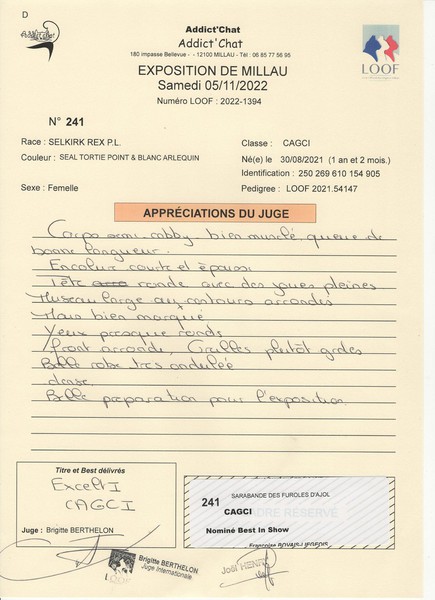 D
Addict'Chat
Addict'Chat
180 impasse Bellevue - - 12100 MILLAU - Tél : 06 85 77 56 95
EXPOSITION DE MILLAU
Samedi 05/11/2022
Numéro LOOF : 2022-1394
LOOF
N° 241
Race : SELKIRK REX P.L.
Classe : CAGCI
Couleur : SEAL TORTIE POINT & BLANC ARLEQUIN
Né(e) le 30/08/2021 (1 an et 2 mois.)
Identification : 250 269 610 154 905
Sexe : Femelle
Pedigree : LOOF 2021.54147
APPRÉCIATIONS DU JUGE
Corps semi-cobby bien musclé, queue de
bonne longueur.
Encolure courte et épaisse
Tête ronde avec des joues pleines
Museau large aux contours arrondis
bien marqué
Yeux presque ronds
front arrondi, Oreilles plutôt gdes
Belle robe très ondulée
dense
Belle préparation pour l'exposition.
Titre et Best délivrés
Excelt I
CAGCI
Juge : Brigitte BERTHELON
241
SARABANDE DES FUROLES D'AJOL
CAGCI
CADRE RÉSERVÉ
Nominé Best In Show
Brigitte BERTHELON
Juge Internationale
LOOF
Joël HENRY